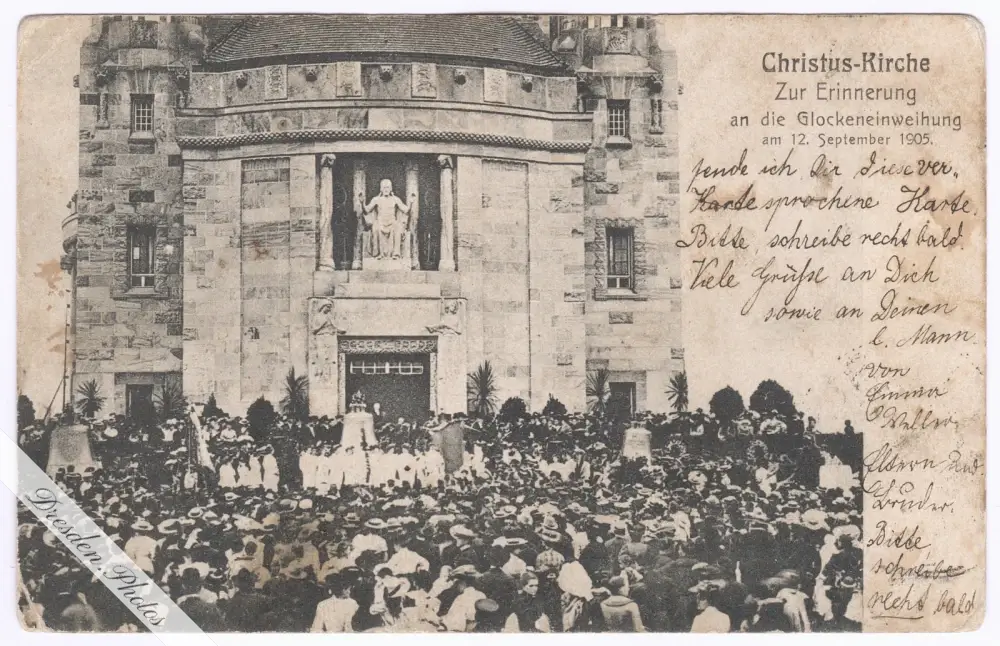 Christus-Kirche
Zur Erinnerung
an die Glockeneinweihung
am 12. September 1905.
sende ich Dir diese ver-
Karte sprochene Karte.
Bitte, schreibe recht bald.
Viele Grüße an Dich
sowie an Deinen
l. Mann
von
Emma
Eltern und
Bruder.
Bitte
schreibe
recht bald
Dresden.Photos